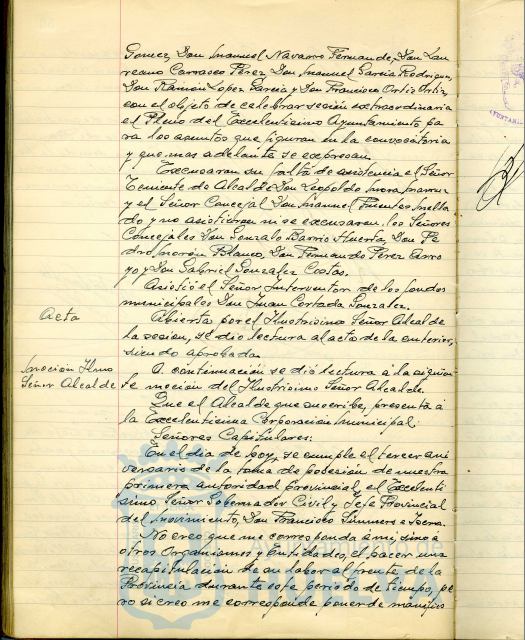 Gomez, Don Manuel Navarro Fernandez, Don Lau
reano Carrasco Pérez, Don Manuel Garcia Rodriguez,
Don Ramón Lopez Garcia y Don Francisco Ortiz Ortiz,
con el objeto de celebrar sesión extraordinaria
el Pleno del Excelentisimo Ayuntamiento pa
ra los asuntos que figuran en la convocatoria
y que mas adelante se expresan.
Excusaron su falta de asistencia el Señor
Teniente de Alcalde Don Leopoldo
y el Señor Concejal Don Manuel Fuentes
do y no asistieron ni se excusaron, los Señores
Concejales Don Gonzalo Barrio Huerta, Don Pe
dro Morón Blanco, Don Fernando Pérez Arro
yo y Don Gabriel Gonzalez Costas.
Asistió el Señor Interventor de los fondos
municipales Don Juan Cortada Gonzalez.
Acta
Abierta por el Ilustrisimo Señor Alcalde
la sesion, se dió lectura al acta de la anterior,
siendo aprobada.
Moción Ilmo
Señor Alcalde
A continuación se dió lectura a la siguien
te moción del Ilustrisimo Señor Alcalde.
Que el Alcalde que suscribe, presenta á
la Excelentisima Corporación Municipal:
Señores Capitulares:
En el dia de hoy, se cumple el tercer ani
versario de la toma de posesión de nuestra
primera autoridad provincial, el Excelenti
simo Señor Gobernador Civil y Jefe Provincial
del Movimiento, Don Francisco Summers e Isern.
No creo que me corresponda á mi, sino a
otros Organismos y Entidades, el hacer una
recapitulación de su labor al frente de la
Provincia durante este periodo de tiempo, pe
ro si creo me corresponde poner de manifies